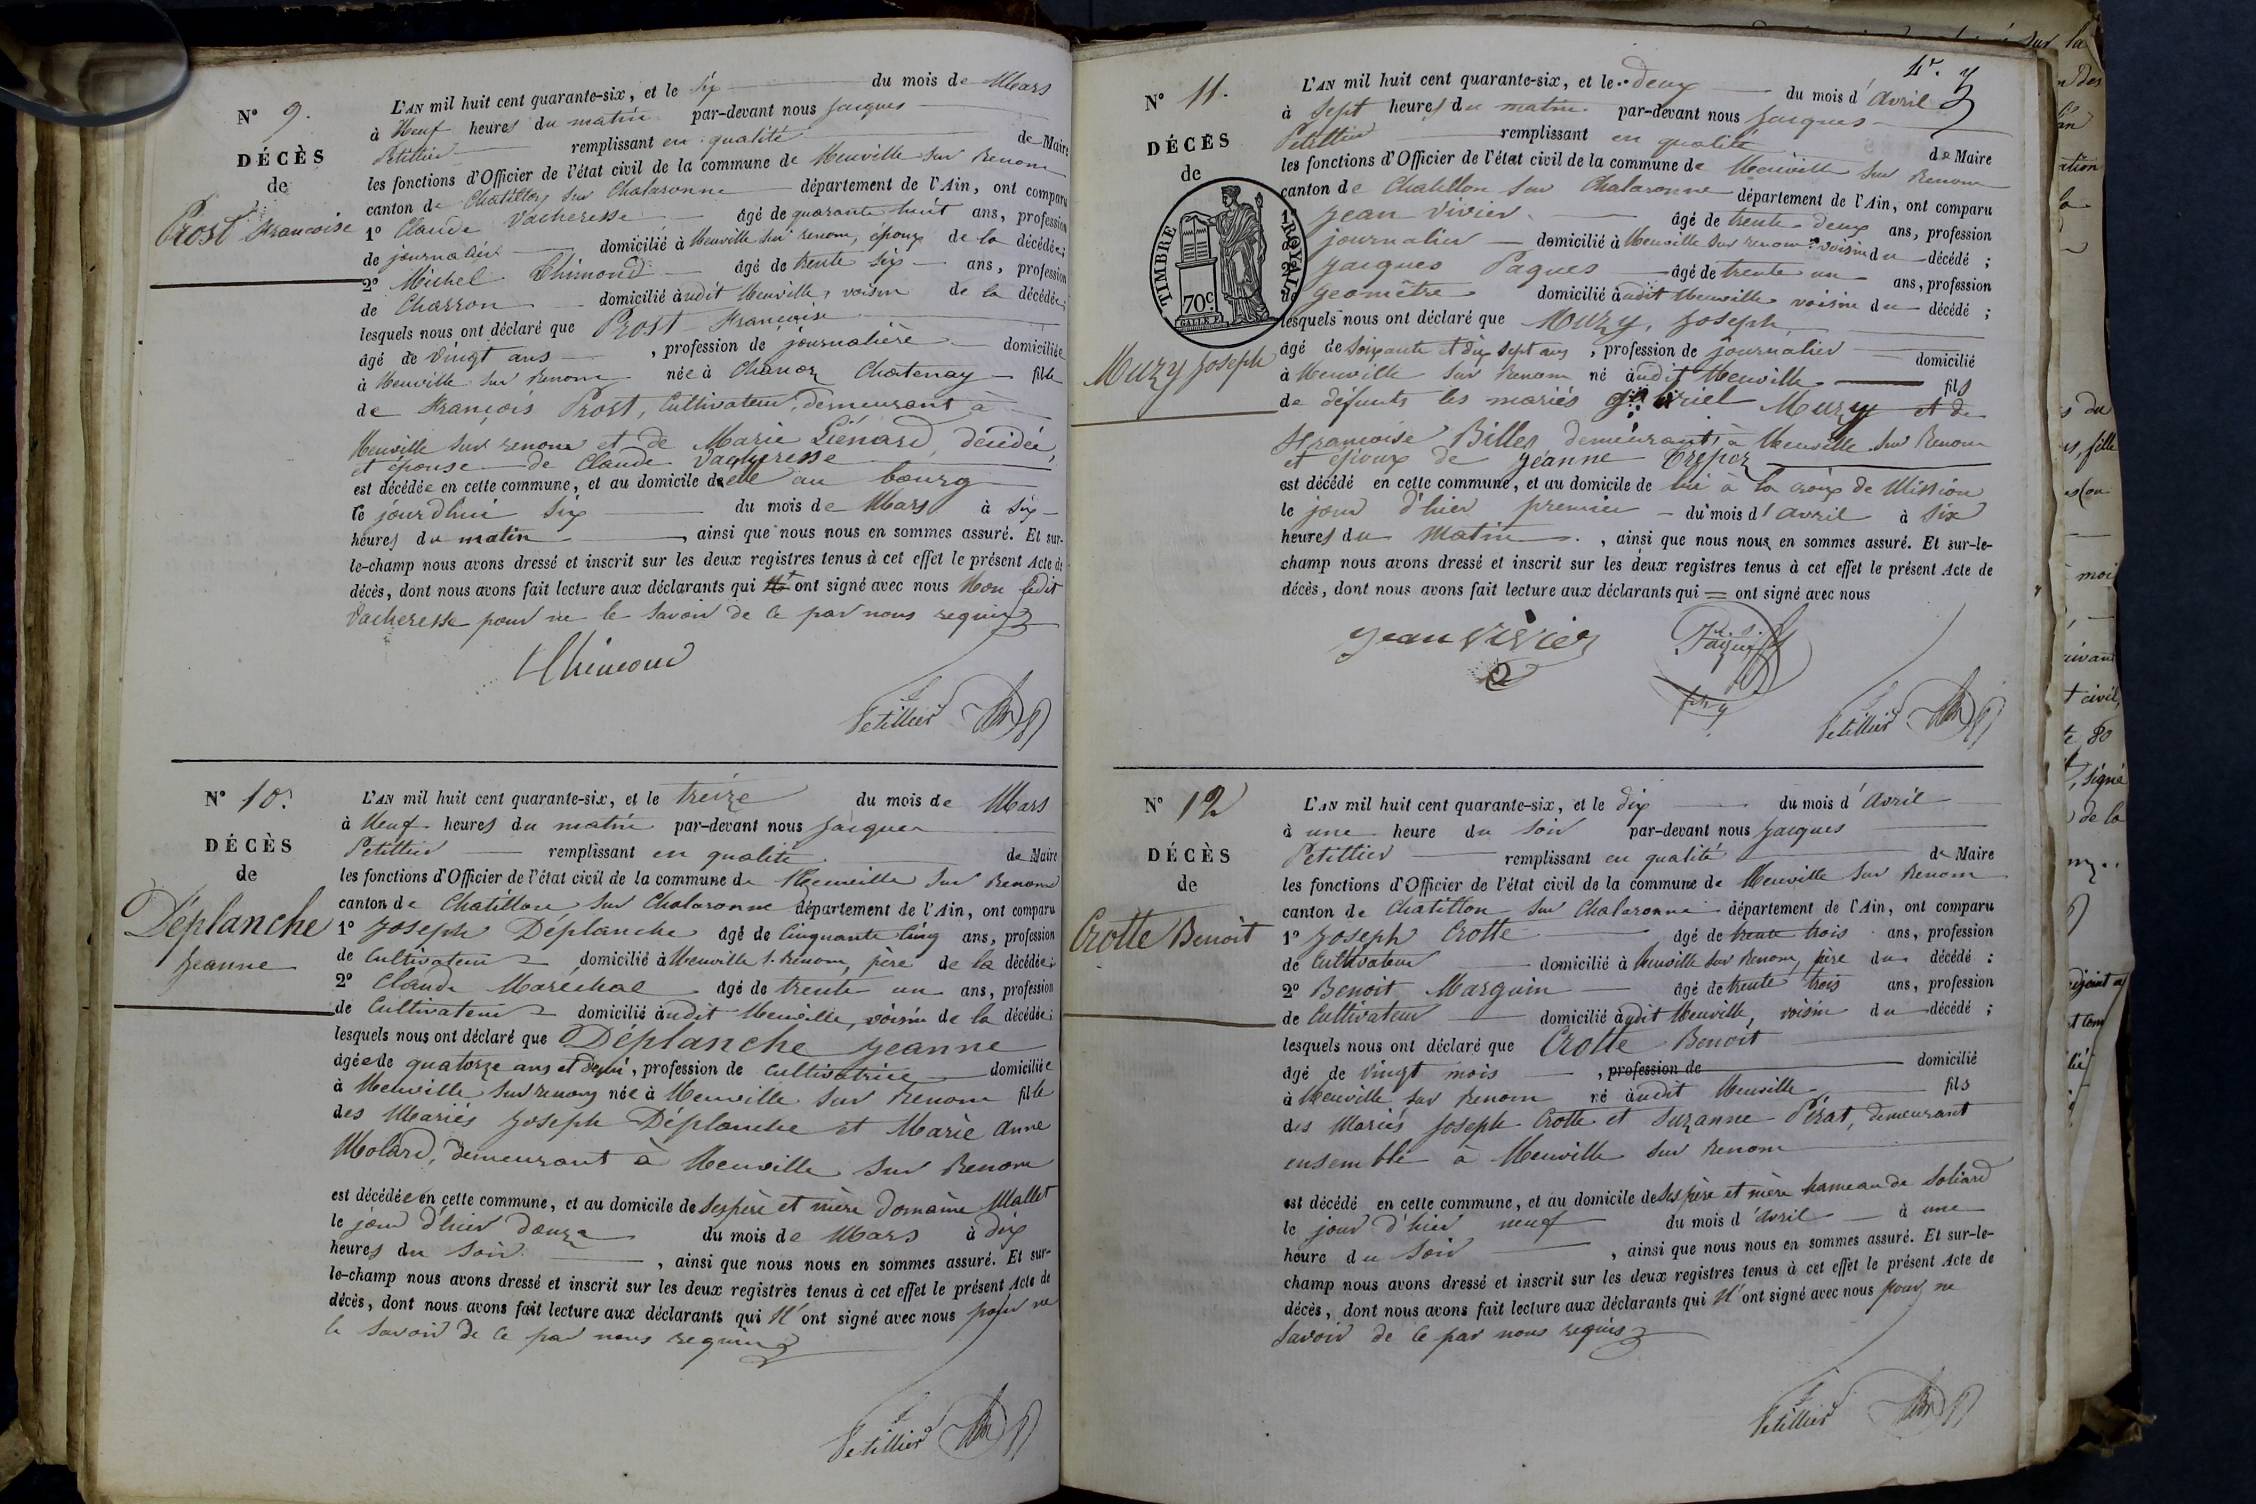 N° 9.
DÉCÈS
de
Prost Francoise
L'AN mil huit cent quarante-six, et le six du mois de Mars
à Neuf heures du matin par-devant nous Jacques
Petillier remplissant en qualité de Maire
les fonctions d'Officier de l'état civil de la commune de Neuville sur Renom
canton de Chatillon sur Chalaronne département de l'Ain, ont comparu
1° Claude Vacheresse âgé de quarante huit ans, profession
de journalier domicilié à Neuville sur renom, époux de la décédée;
2° Michel Thimond âgé de trente six ans, profession
de Charron domicilié àudit Neuville, voisin de la décédée;
lesquels nous ont déclaré que Prost Francoise
âgé de vingt ans, profession de journalière domiciliée
à Neuville sur Renom née à Chanoz Chatenay fille
de François Prost, Cultivateur, demeurant à
Neuville sur renom et de Marie Liénard, décédée,
et épouse de Claude Vacheresse
est décédée en cette commune, et au domicile de elle au bourg
le jourdhui six du mois de Mars à six
heures du matin, ainsi que nous nous en sommes assuré. Et sur-
le-champ nous avons dressé et inscrit sur les deux registres tenus à cet effet le présent Acte de
décès, dont nous avons fait lecture aux déclarants qui ont signé avec nous Non ledit
Vacheresse pour ne le savoir de ce par nous requis
Thimond
Petillier
N° 10.
DÉCÈS
de
Déplanche
Jeanne
L'AN mil huit cent quarante-six, et le treize du mois de Mars
à Neuf heures du matin par-devant nous Jacques
Petillier remplissant en qualité de Maire
les fonctions d'Officier de l'état civil de la commune de Neuville sur Renom
canton de Chatillon sur Chalaronne département de l'Ain, ont comparu
1° Joseph Déplanche âgé de Cinquante Cinq ans, profession
de Cultivateur domicilié à Neuville s. Renom, père de la décédée;
2° Claude Maréchal âgé de trente un ans, profession
de Cultivateur domicilié àudit Neuville, voisin de la décédée;
lesquels nous ont déclaré que Déplanche Jeanne
âgée de quatorze ans et demi, profession de Cultivatrice domiciliée
à Neuville sur renom née à Neuville sur Renom fille
des Mariés Joseph Déplanche et Marie Anne
Molard, demeurant à Neuville sur Renom
est décédée en cette commune, et au domicile de Ses père et mère Domaine Mallet
le jour d'hier douze du mois de Mars à dix
heures du Soir, ainsi que nous nous en sommes assuré. Et sur-
le-champ nous avons dressé et inscrit sur les deux registres tenus à cet effet le présent Acte de
décès, dont nous avons fait lecture aux déclarants qui N'ont signé avec nous pour ne
le Savoir de ce par nous requis
Petillier
4r.
N° 11.
DÉCÈS
de
TIMBRE ROYAL
70c.
Muzy Joseph
L'AN mil huit cent quarante-six, et le deux du mois d'Avril
à Sept heures du matin par-devant nous Jacques
Petillier remplissant en qualité de Maire
les fonctions d'Officier de l'état civil de la commune de Neuville sur Renom
canton de Chatillon sur Chalaronne département de l'Ain, ont comparu
Jean Vivier âgé de trente deux ans, profession
journalier domicilié à Neuville sur renom voisin du décédé;
Jacques Paques âgé de trente un ans, profession
de géomètre domicilié àudit Neuville voisin du décédé;
lesquels nous ont déclaré que Muzy, Joseph
âgé de Soixante et dix sept ans, profession de journalier domicilié
à Neuville sur Renom né àudit Neuville fils
de défunts les mariés gabriel Muzy et de
Francoise Billes, demeurant à Neuville sur Renom
et époux de Jeanne Crepoz
est décédé en cette commune, et au domicile de lui à la croix de Mission
le jour d'hier premier du mois d'avril à Six
heures du Matin, ainsi que nous nous en sommes assuré. Et sur-le-
champ nous avons dressé et inscrit sur les deux registres tenus à cet effet le présent Acte de
décès, dont nous avons fait lecture aux déclarants qui = ont signé avec nous
Jean Vivier
Petillier
N° 12
DÉCÈS
de
Crotte Benoit
L'AN mil huit cent quarante-six, et le dix du mois d'Avril
à une heure du Soir par-devant nous Jacques
Petillier remplissant en qualité de Maire
les fonctions d'Officier de l'état civil de la commune de Neuville sur Renom
canton de Chatillon sur Chalaronne département de l'Ain, ont comparu
1° Joseph Crotte âgé de trente trois ans, profession
de Cultivateur domicilié à Neuville sur Renom, père du décédé;
2° Benoit Marguin âgé de trente trois ans, profession
de Cultivateur domicilié àudit Neuville, voisin du décédé;
lesquels nous ont déclaré que Crotte Benoit
âgé de vingt mois, profession de domicilié
à Neuville sur Renom né àudit Neuville fils
des Mariés Joseph Crotte et Suzanne Pérat, demeurant
ensemble à Neuville sur Renom
est décédé en cette commune, et au domicile de Ses père et mère hameau de Soliard
le jour d'hier neuf du mois d'Avril à une
heure du Soir, ainsi que nous nous en sommes assuré. Et sur-le-
champ nous avons dressé et inscrit sur les deux registres tenus à cet effet le présent Acte de
décès, dont nous avons fait lecture aux déclarants qui N'ont signé avec nous pour ne
Savoir de ce par nous requis
Petillier